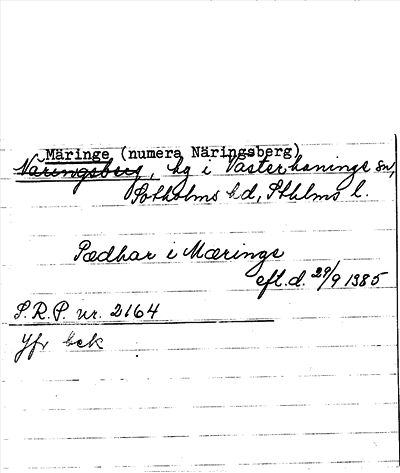 Märinge (numera Näringsberg)
Näringsberg, hg i Västerhanings sn,
Sotholms hd, Sthlms l.
Pædhar i Mærings
efl. d. 29/9 1385
S.R.P. nr. 2164
Jfr bck